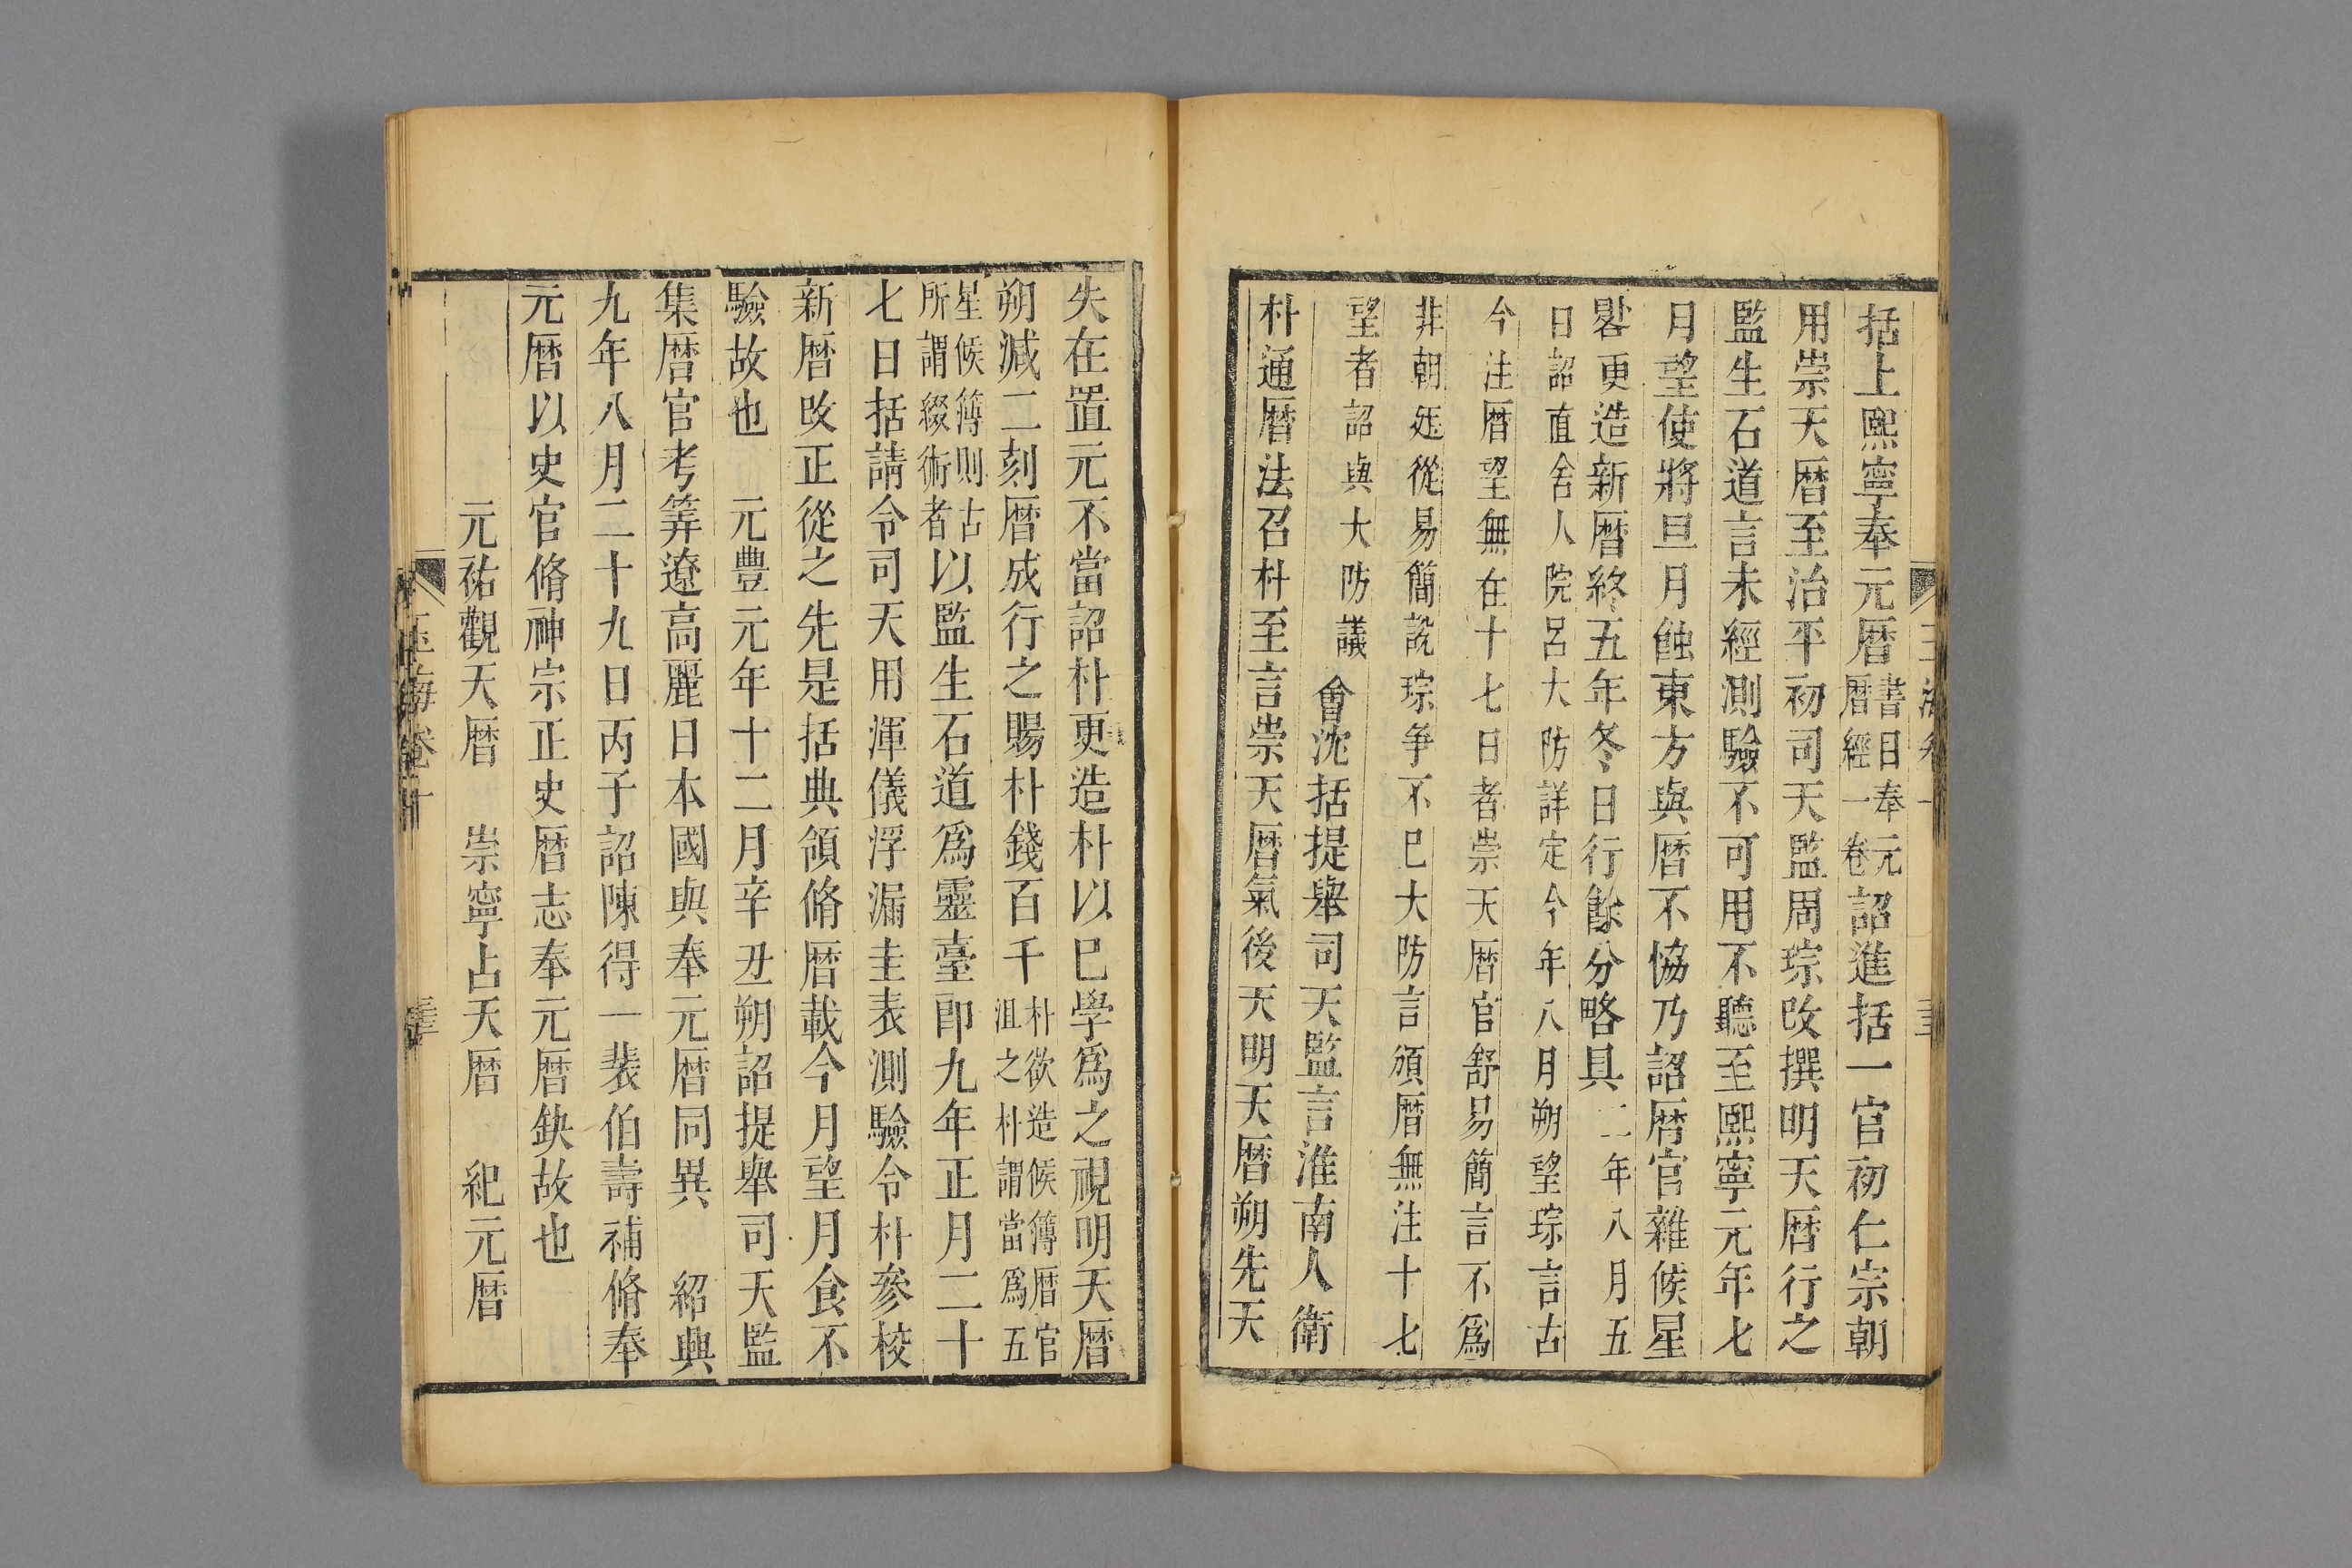 括上熙寧奉元暦書目奉元暦經一卷詔進括一官初仁宗朝
用崇天暦至治平初司天監周琮改撰明天暦行之
監生石道言未經測驗不可用不聽至熙寧元年七
月望使將旦月蝕東方與暦不恊乃詔暦官雜候星
晷更造新暦終五年冬日行餘分略具二年八月五
日詔直舍人院呂大防詳定今年八月朔望琮言古
今注暦望無在十七日者崇天暦官舒易簡言不爲
非朝廷從易簡說琮爭不已大防言頒暦無注十七
望者詔與大防議會沈括提舉司天監言淮南人衛
朴通暦法召朴至言崇天暦氣後天明天暦朔先天
失在置元不當詔朴更造朴以巳學爲之視明天暦
朔減二刻暦成行之賜朴錢百千朴欲造候簿暦官沮之朴謂當爲五
星候簿則古所謂綴術者以監生石道爲靈臺郎九年正月二十
七日括請令司天用渾儀浮漏圭表測驗令朴參校
新暦改正從之先是括典領脩暦載今月望月食不
驗故也 元豐元年十二月辛丑朔詔提舉司天監
集暦官考筭遼高麗日本國與奉元暦同異 紹興
九年八月二十九日丙子詔陳得一裴伯壽補脩奉
元暦以史官脩神宗正史暦志奉元暦鈌故也
元祐觀天暦 崇寧占天暦 紀元暦
玉海卷十